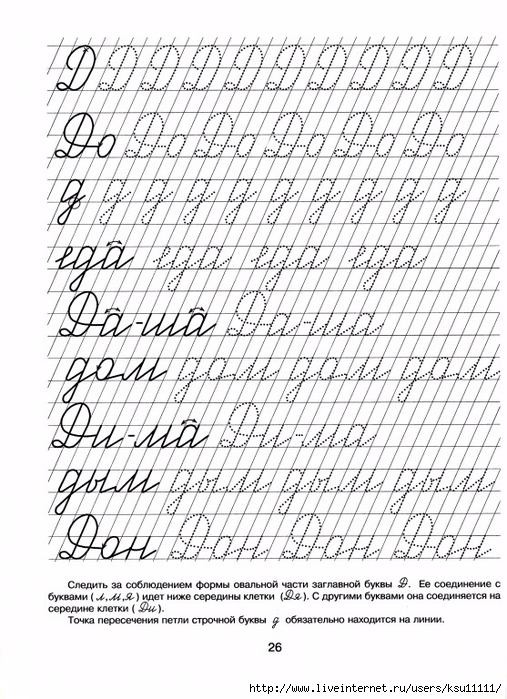 Д Д Д Д Д Д Д Д Д Д
До До До До До До
д д д д д д д д д д
еда еда еда еда
Да-ша Да-ша
дом дом дом дом
Ди-ма Ди-ма
дым дым дым дым
Дон Дон Дон Дон
Следить за соблюдением формы овальной части заглавной буквы Д. Ее соединение с
буквами (л,м,я) идет ниже середины клетки (Дя). С другими буквами она соединяется на
середине клетки (Ди).
Точка пересечения петли строчной буквы д обязательно находится на линии.
26
http://www.liveinternet.ru/users/ksu11111/